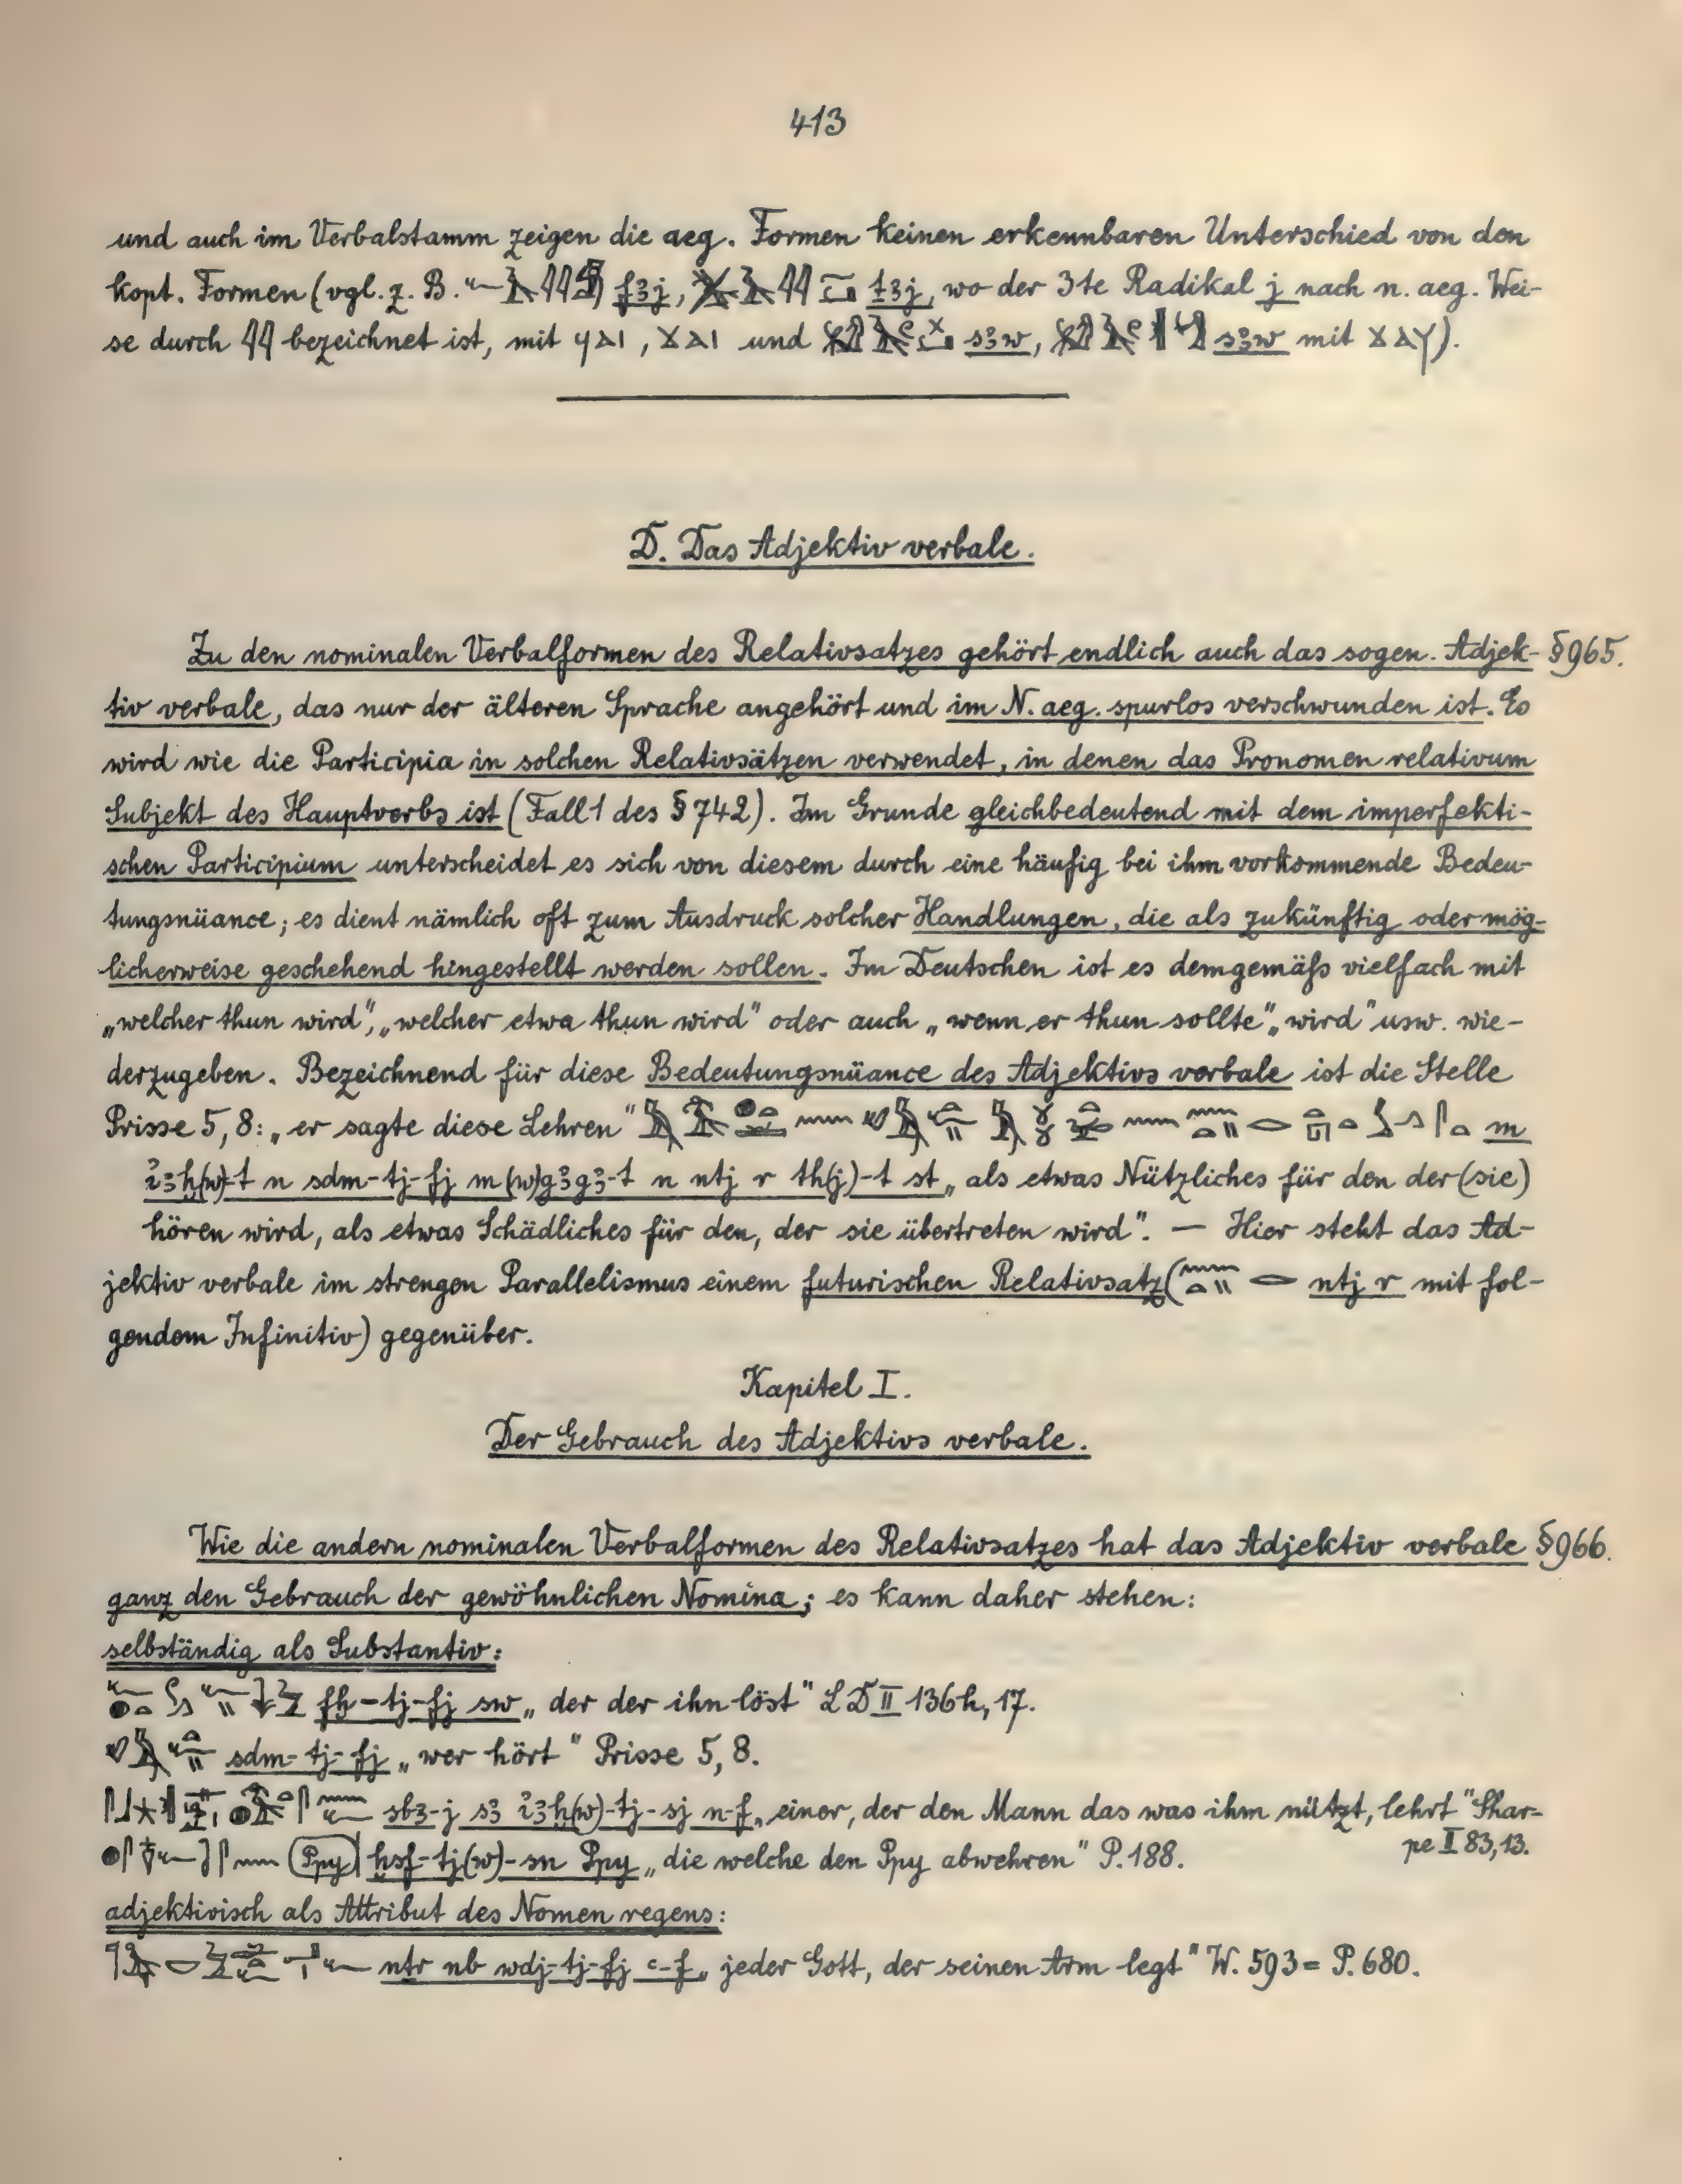 413
und auch im Verbalstamm zeigen die aeg. Formen keinen erkennbaren Unterschied von den
kopt. Formen (vgl. z. B. f3j, t3j, wo der 3te Radikal j nach n. aeg. Wei-
se durch 𓇌 bezeichnet ist, mit ϥⲁⲓ, ϫⲁⲓ und s3w, s3w mit ϫⲁⲩ).
D. Das Adjektiv verbale.
Zu den nominalen Verbalformen des Relativsatzes gehört endlich auch das sogen. Adjek- § 965.
tiv verbale, das nur der älteren Sprache angehört und im N. aeg. spurlos verschwunden ist. Es
wird wie die Participia in solchen Relativsätzen verwendet, in denen das Pronomen relativum
Subjekt des Hauptverbs ist (Fall 1 des § 742). Im Grunde gleichbedeutend mit dem imperfekti-
schen Participium unterscheidet es sich von diesem durch eine häufig bei ihm vorkommende Bedeu-
tungsnüance; es dient nämlich oft zum Ausdruck solcher Handlungen, die als zukünftig oder mög-
licherweise geschehend hingestellt werden sollen. Im Deutschen ist es demgemäß vielfach mit
„welcher thun wird", „welcher etwa thun wird" oder auch „wenn er thun sollte", „wird" usw. wie-
derzugeben. Bezeichnend für diese Bedeutungsnüance des Adjektivs verbale ist die Stelle
Prisse 5,8: „er sagte diese Lehren" m
i3ḫ(w)-t n sdm-tj-fj m (w)g3g3-t n ntj r th(j)-t st „als etwas Nützliches für den der (sie)
hören wird, als etwas Schädliches für den, der sie übertreten wird". — Hier steht das Ad-
jektiv verbale im strengen Parallelismus einem futurischen Relativsatz (ntj r mit fol-
gendem Infinitiv) gegenüber.
Kapitel I.
Der Gebrauch des Adjektivs verbale.
Wie die andern nominalen Verbalformen des Relativsatzes hat das Adjektiv verbale § 966.
ganz den Gebrauch der gewöhnlichen Nomina; es kann daher stehen:
selbständig als Substantiv:
fḫ-tj-fj sw „der der ihn löst" LD II 136h, 17.
sdm-tj-fj „wer hört" Prisse 5, 8.
sb3-j s3 i3ḫ(w)-tj-sj n-f „einer, der den Mann das was ihm nützt, lehrt" Shar-
pe I 83, 13.
(Ppy) ḫsf-tj(w)-sn Ppy „die welche den Ppy abwehren" P. 188.
adjektivisch als Attribut des Nomen regens:
ntr nb wdj-tj-fj ꜥ-f „jeder Gott, der seinen Arm legt" W. 593 = P. 680.